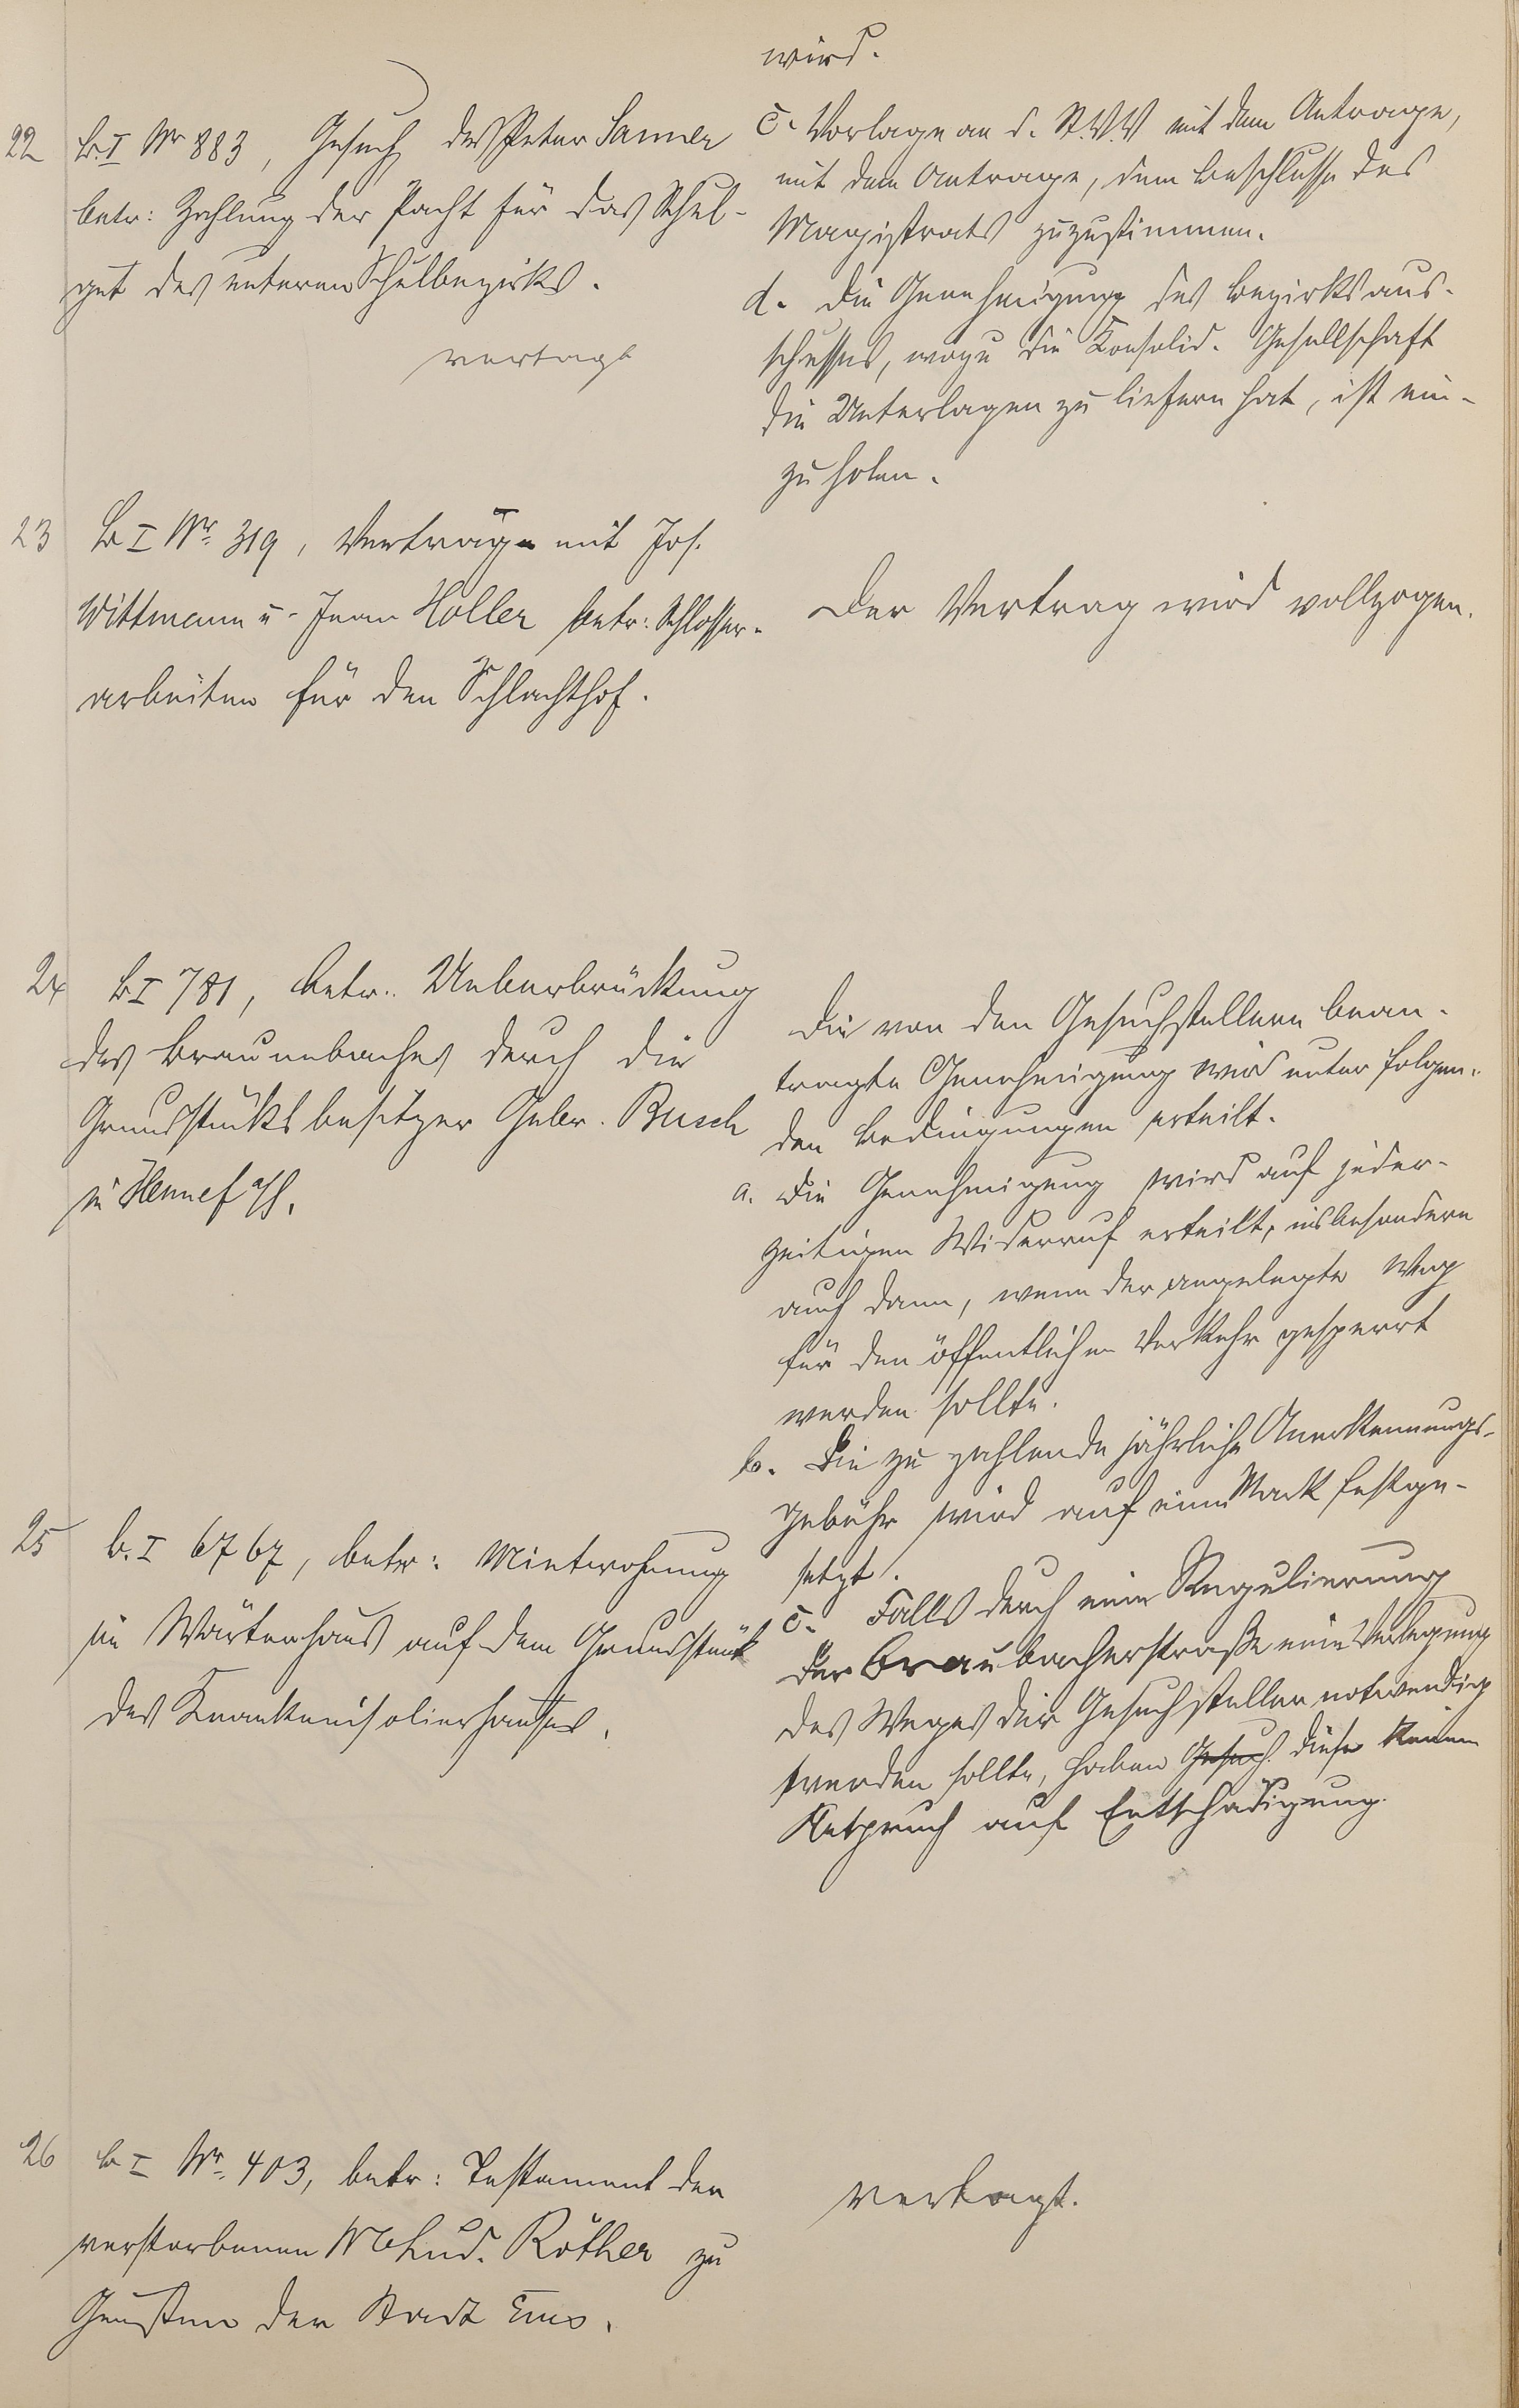 wird.
c. Vorlage an d. St.V.V mit dem Antrage,
mit dem Antrage, dem Beschlusse des
Magistrats zuzustimmen.
d. Die Genehmigung des Bezirksaus-
schusses, wozu die Konsolid. Gesellschaft
die Unterlagen zu liefern hat, ist ein-
zuholen.
22 B.I Nr 883, Gesuch des Peter Sanner
betr: Zahlung der Pacht für das Schul-
gut des unteren Schulbezirks.
vertagt
23 B I Nr. 319, Verträge mit Jos.
Wittmann u. Jean Holler betr: Schlosser-
arbeiten für den Schlachthof.
Der Vertrag wird vollzogen.
24 B I 781, betr. Ueberbrückung
des Braunebaches durch die
Grundstücksbesitzer Gebr. Busch
in Hennef a/S.
Die von den Gesuchstellern bean-
tragte Genehmigung wird unter folgen-
den Bedingungen erteilt.
a. Die Genehmigung wird auf jeder-
zeitigen Widerruf erteilt, insbesondere
auch dann, wenn der angelegte Weg
für den öffentlichen Verkehr gesperrt
werden sollte.
b. Die zu zahlende jährliche Anerkennungs-
gebühr wird auf eine Mark festge-
setzt.
c. Falls durch eine Regulierung
der Braubacherstraße eine Verlegung
des Weges der Gesuchsteller notwendig
werden sollte, haben Gesuch. diese keinen
Anspruch auf Entschädigung.
25 B. I 6767, betr: Mietwohnung
im Wärterhaus auf dem Grundstück
des Krankenisolierhauses.
26 B I Nr. 403, betr: Testament der
verstorbenen Röther zu
Gunsten der Stadt Ems.
vertagt.